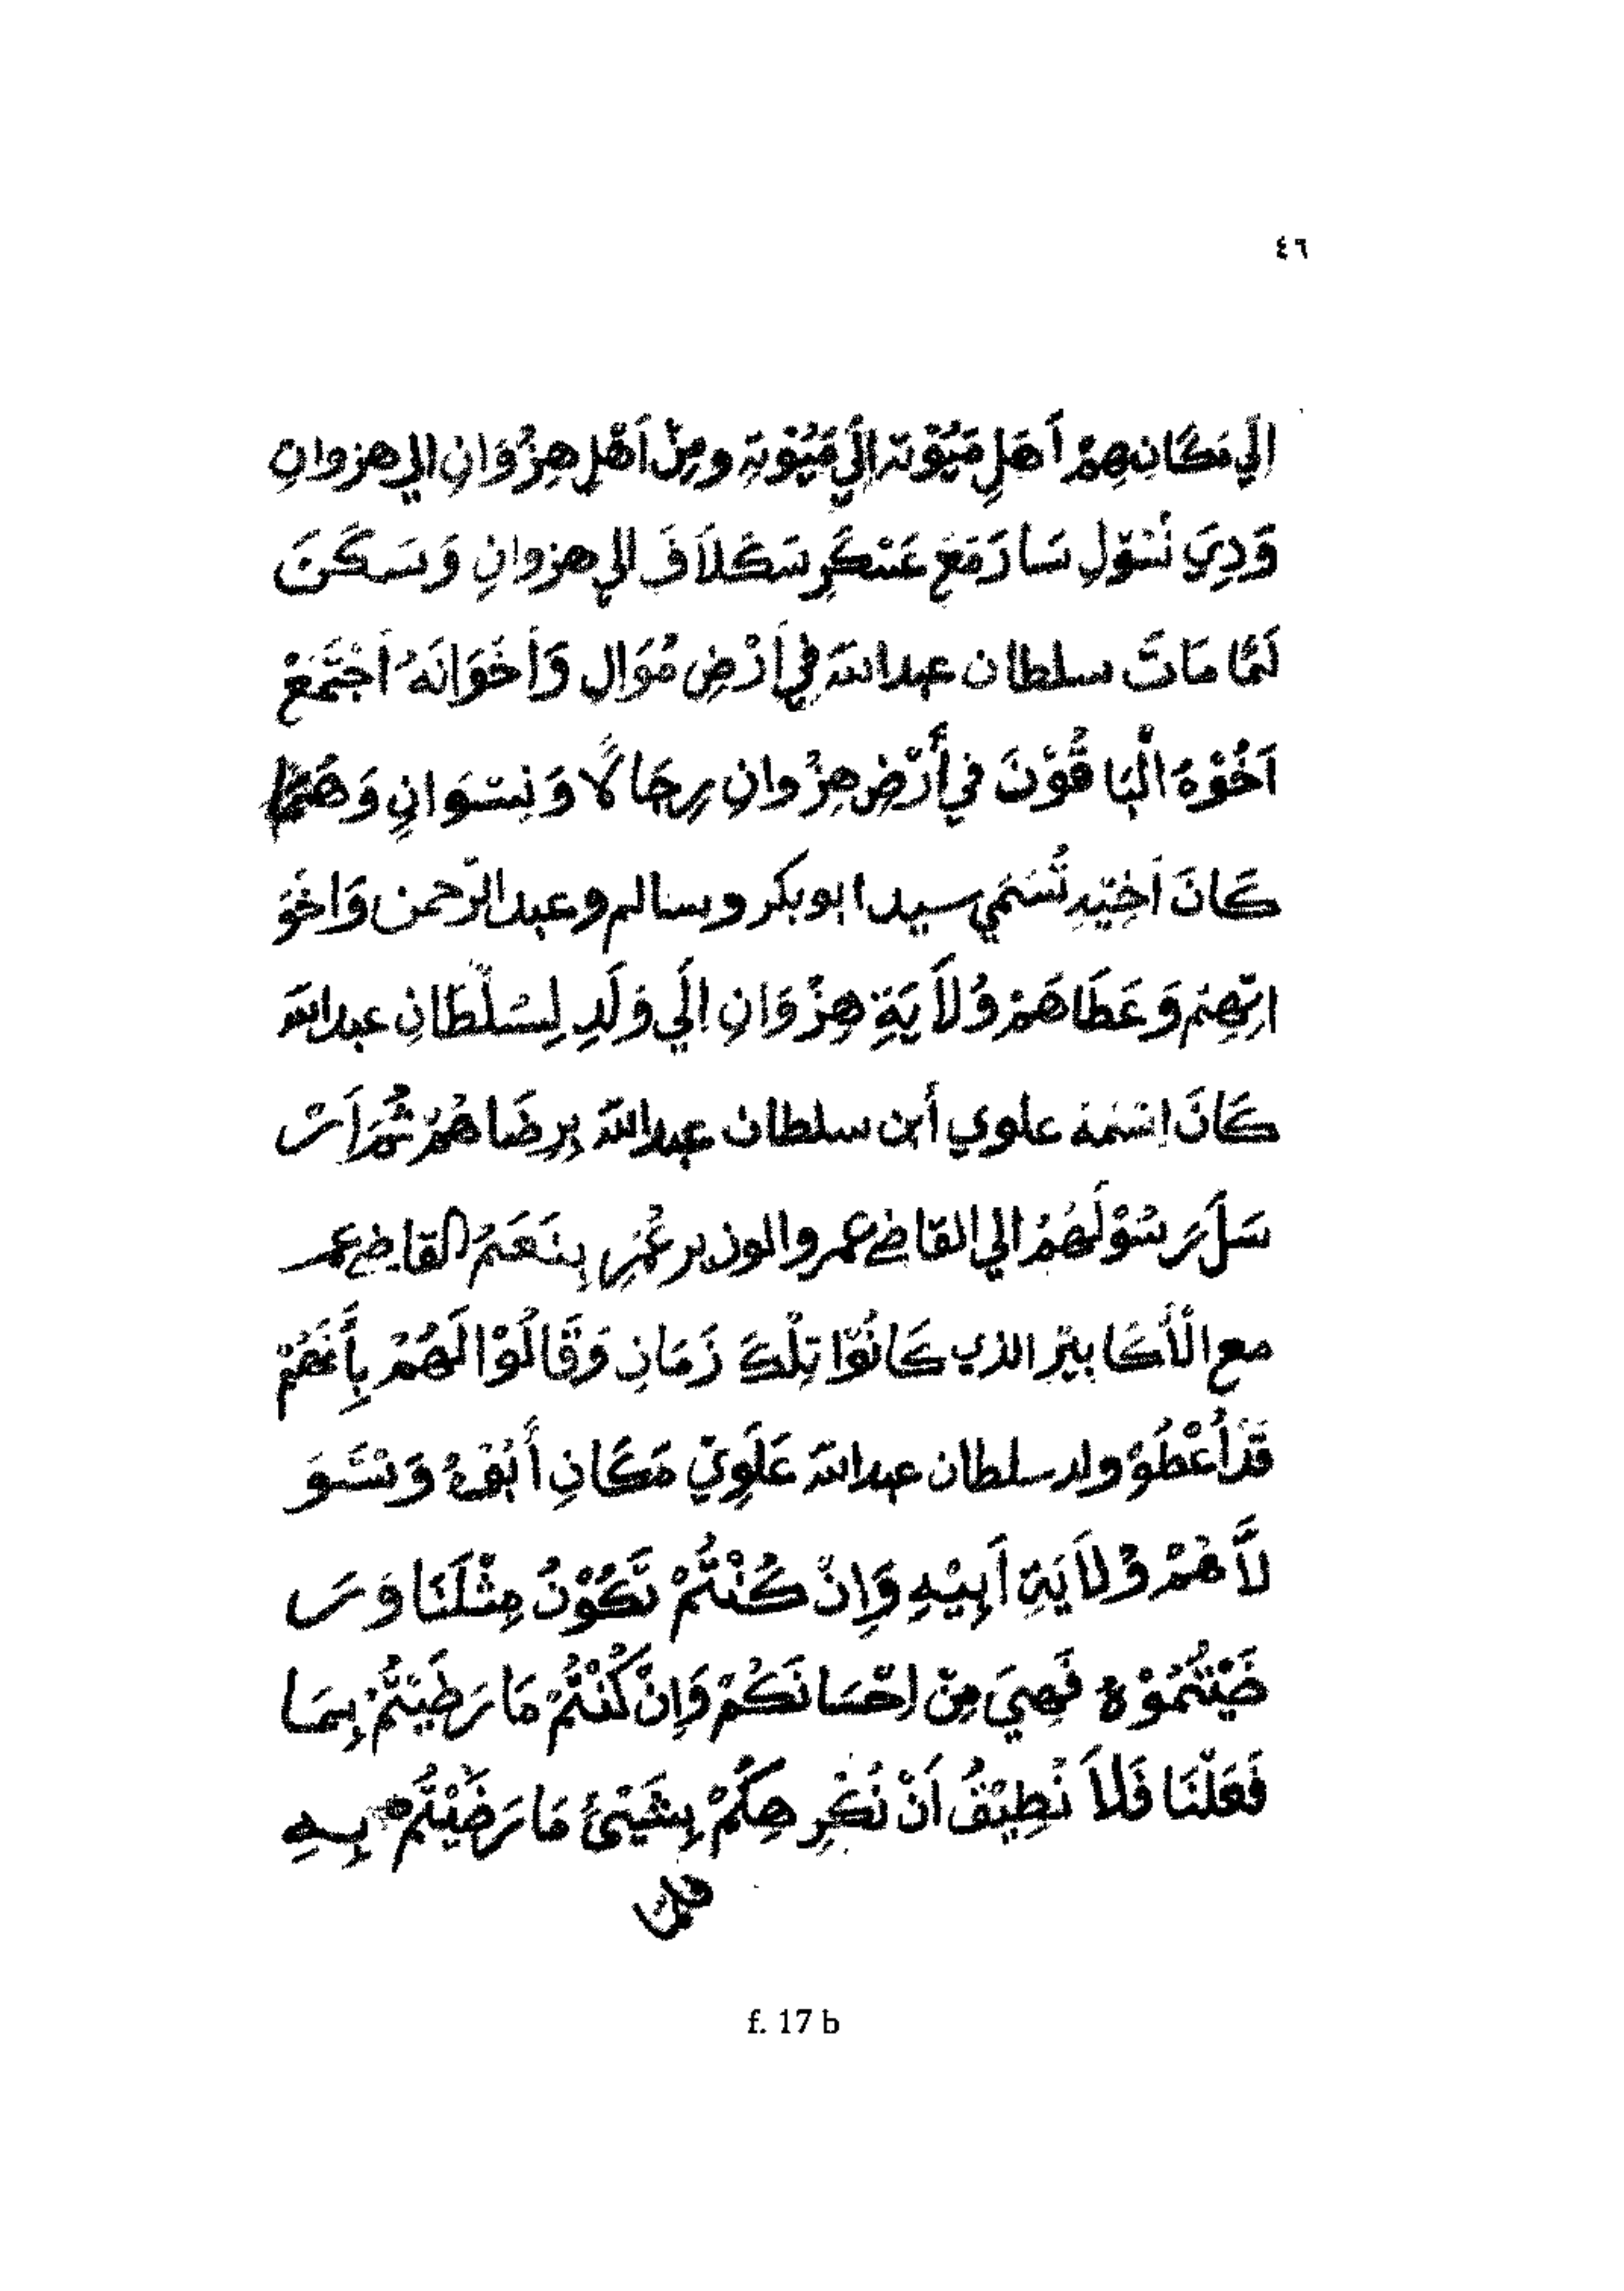 ٤٦
اِلَي مَكَانِهِمْ اَهَلِ مَيُوْتَة اِلَيِ مَيُوْتِة ومِنْ اَهْلِ هِزْوَانِ الي هزوانِ
وَدِيَ نَسَوْلِ سَارَ مَعَ عَسْكَرِ سَكَلاَفَ الي هزوانِ وَسَكَنَ
لَمَّا مَاتَ سلطان عبدالله فِي اَرْضِ مُوَالِ وَاَخَوَانَهُ اَجْتَمَعْ
اَخُوْهُ الْبَاقُوْنَ في أَرْضِ هِزْوانِ رِجَالًا وَنِسْوَانِ وَهُمَّا
كَانَ اَخِيْدِ تُسَمَّي سيد ابوبكر وسالم وعبد الرّحمن وَاخَوَ
اتِهِمْ وَعَطَاهَمْ وُلاَيَةِ هِزْوَانِ اِلَي وَلَدِ لِسُلْطَانِ عبدالله
كَانَ اِسْمَهُ علوي أبن سلطان عبدالله بِرِضَاهُمْ ثُمَّ اَرْ
سَلَ رَسُوْلَهُمْ الي القاضي عمر والوزير بِنَعَمْ القاضي عمر
مع الْأَكَابِيْرِ الذي كَانُوْا تِلْكَ زَمَانِ وَقَالُوْا لَهُمْ بِأَنَّهُمْ
قَدْ أَعْطَوُ ولد سلطان عبدالله عَلَوِيْ مَكَانِ أَبُوْهُ وَسَوَ
لاَّهُمْ وُلاَيَةِ اَبِيْهِ وَاِنْ كُنْتُمْ تَكُوْنُ مِثْلَنَا وَرَ
ضَيْتُمُوْهُ فَهِيَ مِنْ اِحْسَانَكُمْ وَاِنْ كُنْتُمْ مَا رَضَيْتُمْ بِمَا
فَعَلْنَا فَلاَ نُطِيْقُ اَنْ نُكْرِ هِكُمْ بِشَيْئٍ مَا رَضَيْتُمْ بِهِ
f. 17 b